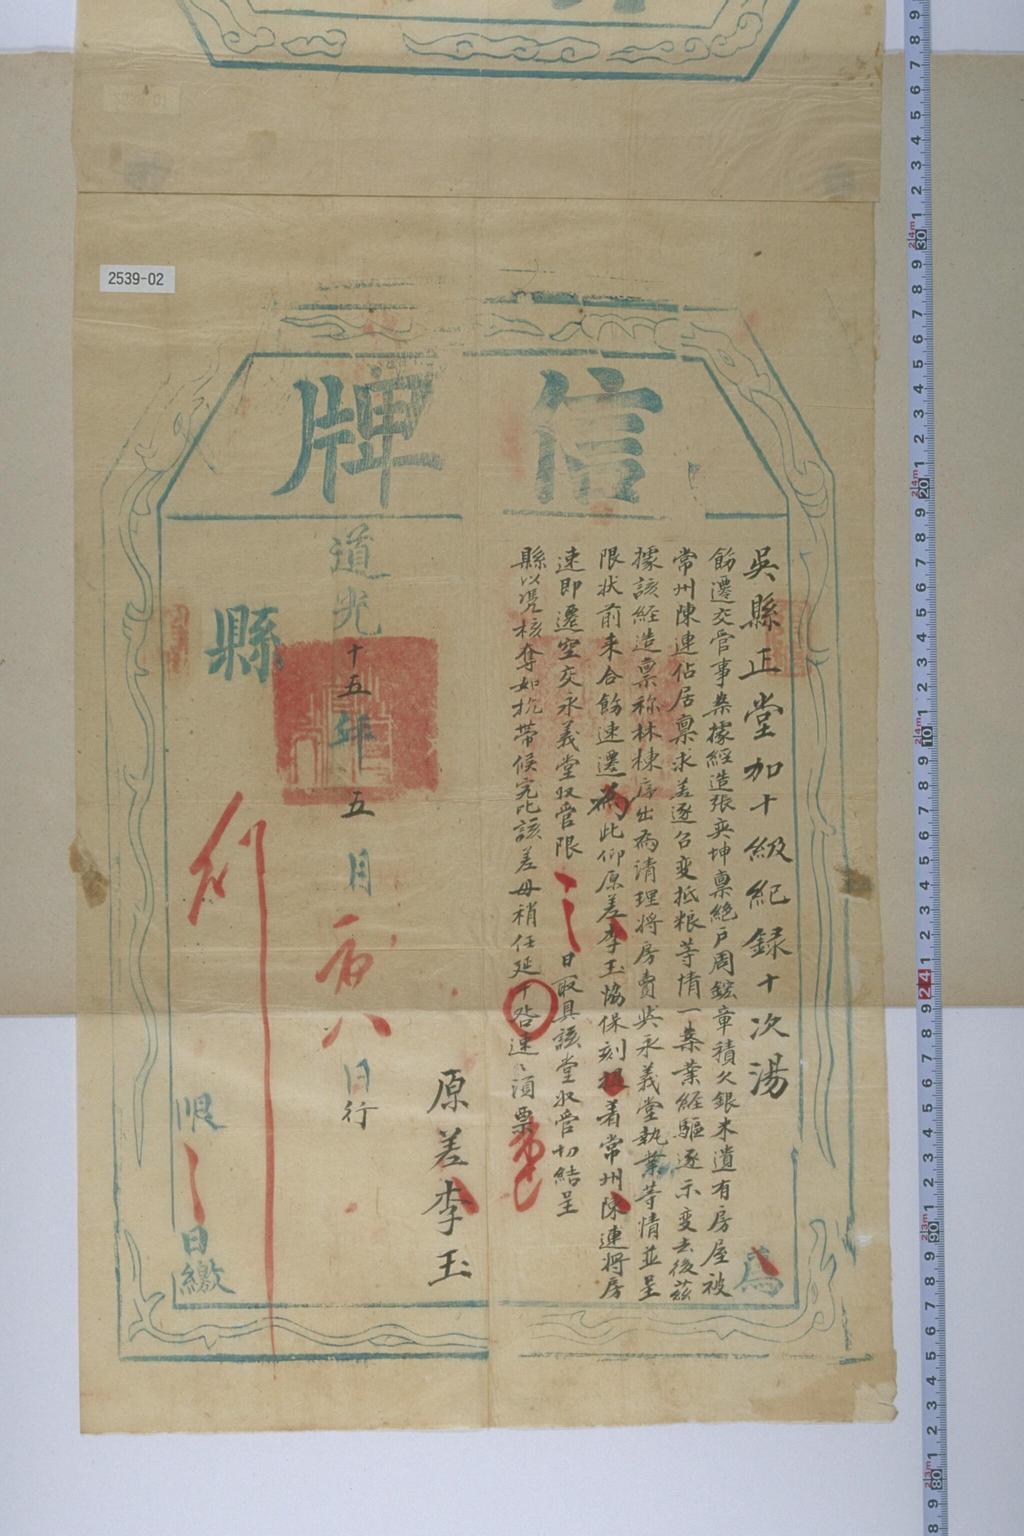 2539-02
信牌
吳縣正堂加十級紀錄十次湯
為
飭遷交管事案據經造張奕坤禀絕戶周鋐章積欠銀米遺有房屋被
常州陳連佔居禀求差逐召变抵粮等情一案業經驅逐示变去後茲
據該經造禀称林棟序出為清理將房賣與永義堂執業等情並呈
限状前来合飭速遷為此仰原差李玉協保刻提着常州陳連將房
速即遷空交永義堂収管限日取具該堂收管切結呈
縣以凭核奪如抗帶候究比該差毋稍任延干咎速〻須票
原差李玉
道光十五年五月 八日行
縣
限 日繳